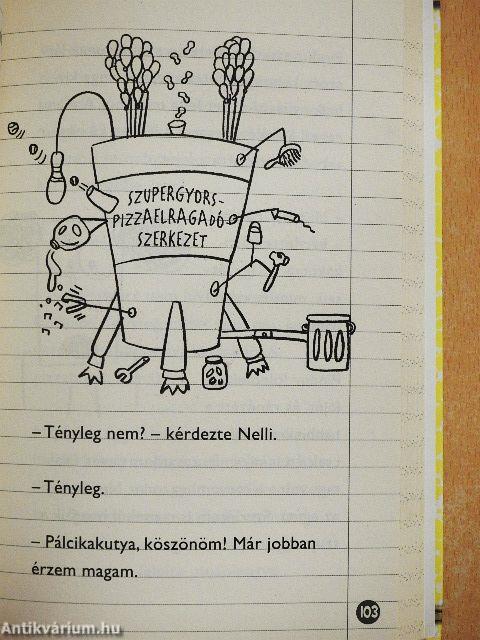 SZUPERGYORS-
PIZZAELRAGADÓ-
SZERKEZET
– Tényleg nem? – kérdezte Nelli.
– Tényleg.
– Pálcikakutya, köszönöm! Már jobban
érzem magam.
103
Antikvárium.hu